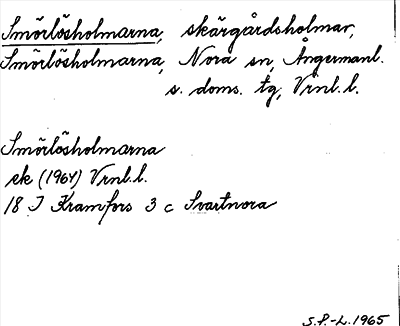 Smörlösholmarna, skärgårdsholmar,
Smörlösholmarna, Nora sn, Ångermanl.
s. doms. tg, Vrnl. l.
Smörlösholmarna
ek (1964) Vrnl. l.
18 I Kramfors 3 c Svartnora
S.P.-L. 1965